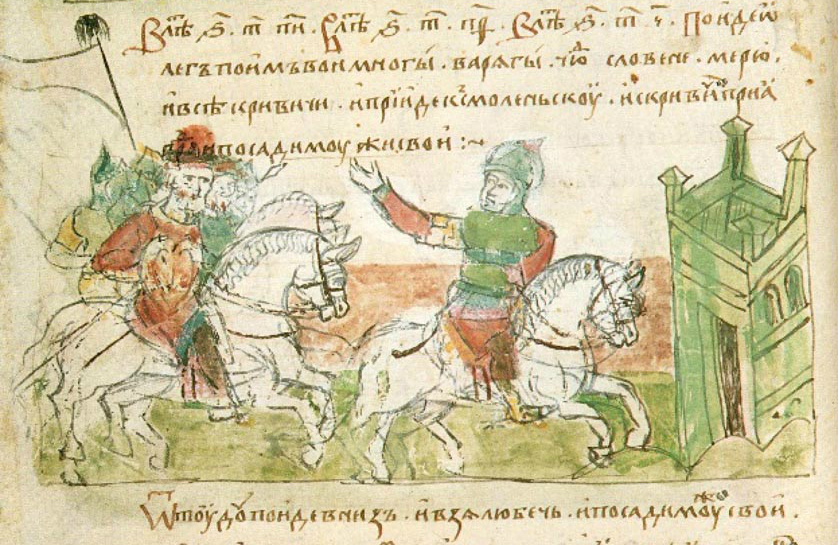 В лѣт҃ ҂ѕ҃ т҃ п҃и · В лѣт҃ ҂ѕ҃ т҃ п҃ѳ · В лѣт҃ ҂ѕ҃ т҃ ч҃ · Поиде ѡ
легъ поимъ вои многы · варѧгы · чю҃ словене · мерю ·
и всѣ кривичи · и прїиде к смоленьскоу · и с кривичи · и приѧ
и посади моужи свои :~
Ѿтоудоу поиде внизъ · и взѧ любечь · и посади моу свои ·